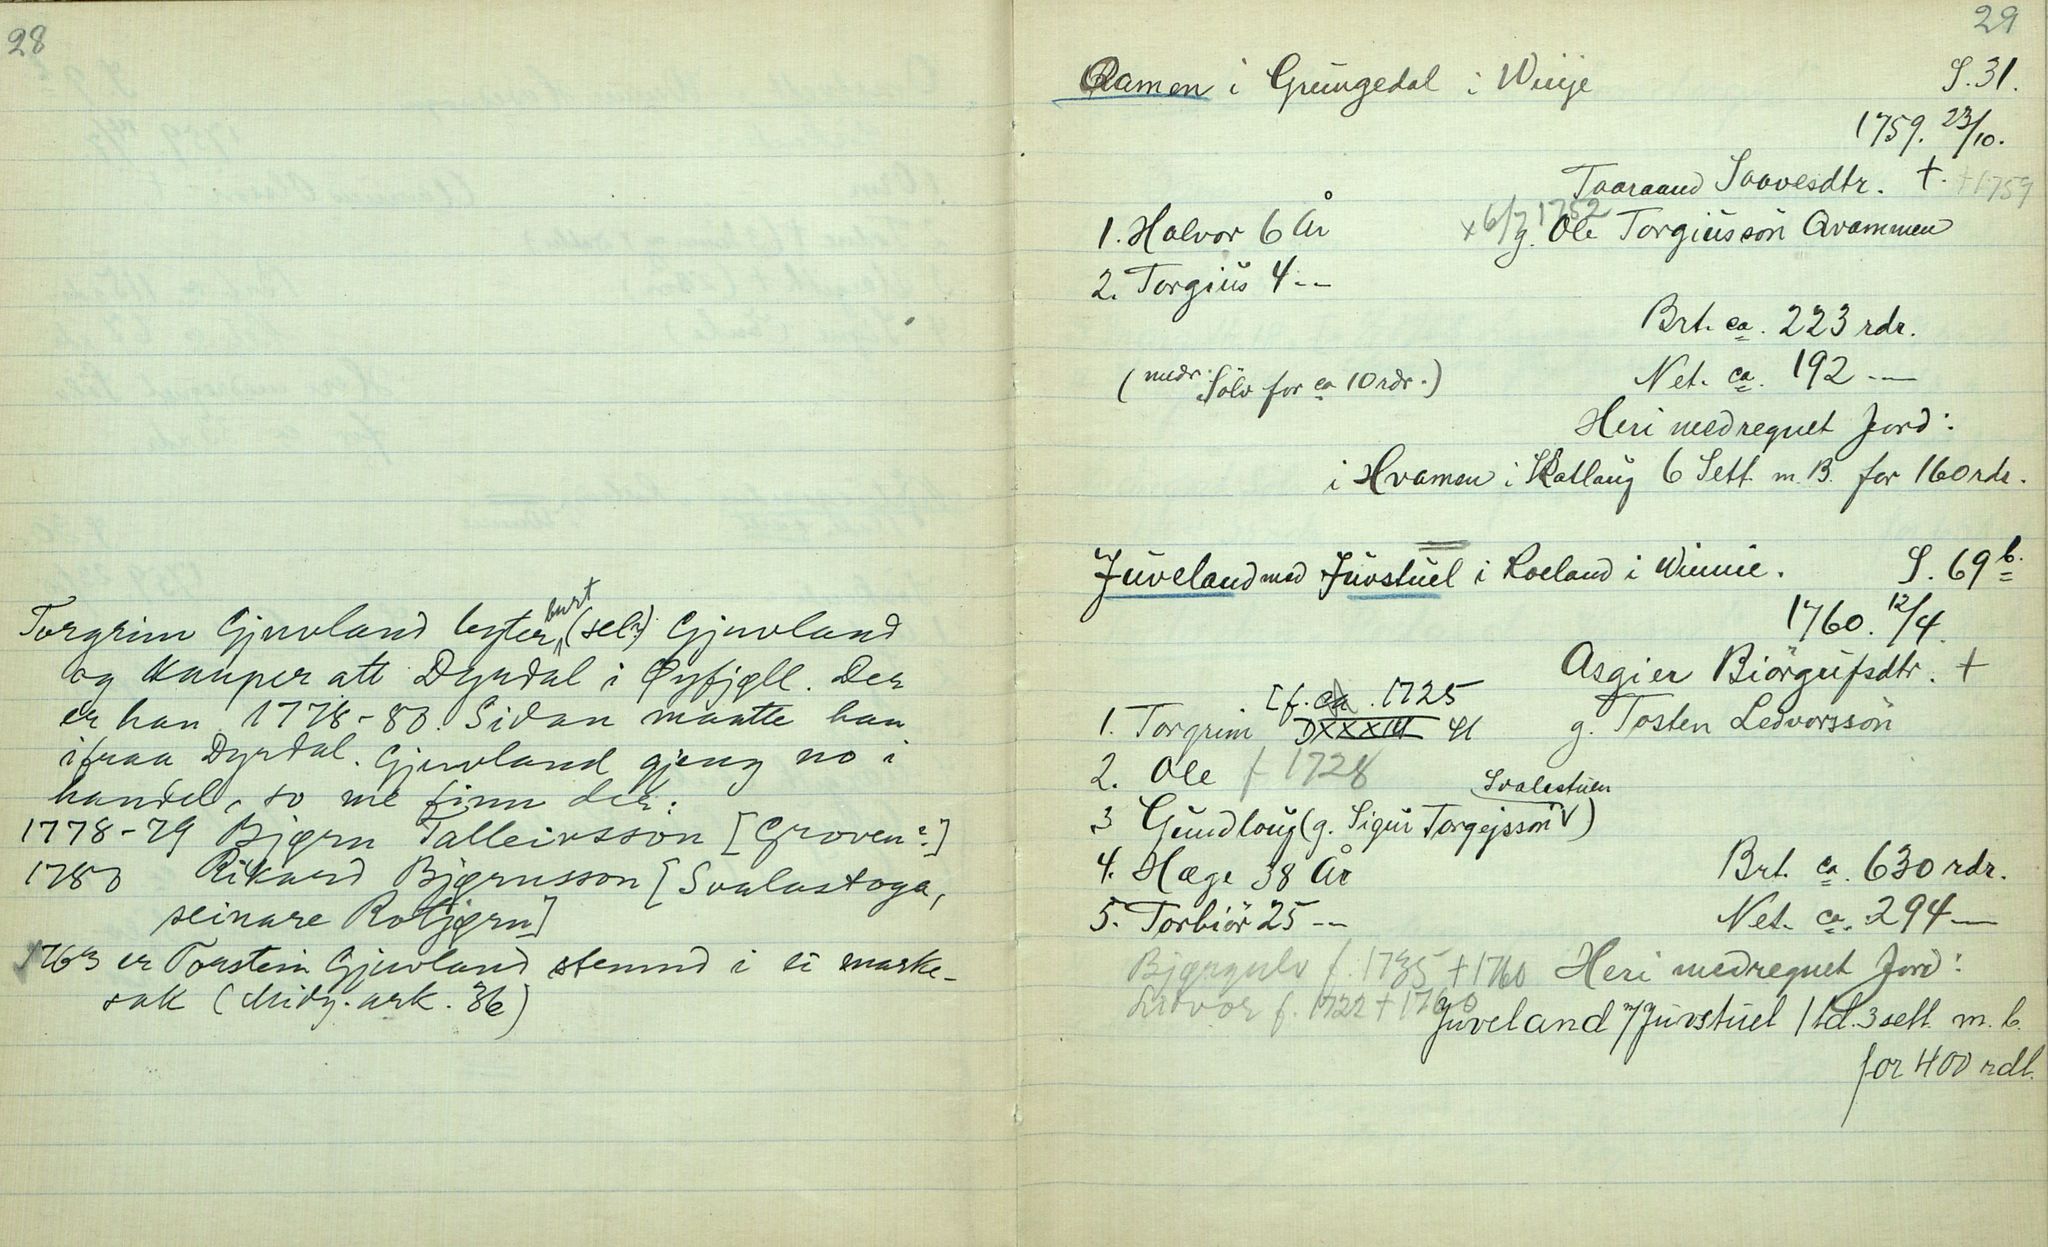 28
Torgrim Gjuvland byter burt (sel?) Gjuvland
og kauper att Dyrdal i Øyfjell. Der
er han 1778-80. Sidan maatte han
ifraa Dyrdal. Gjuvland gjeng no i
handel, so me finn der:
1778-79 Bjørn Talleivsson [Groven?]
1780 Rikard Bjørnsson [Svalastoga,
seinare Rotjørn]
1763 er Torstein Gjuvland stemnd i ei marke-
sak (Midz. ark. 36)
29
Qvamen i Grungedal i Winje S. 31.
1759. 23/10.
Taaraand Saavesdtr. †. †1759
1. Halvor 6 År x 6/7 1752 g. Ole Torgiussøn Qvammen
2. Torgius 4 --
Brt. ca. 223 rdr.
(medr. Sölv for ca 10 rdr.) Net. ca. 192 --
Heri medregnet Jord:
i Hvamen i Skatlaug 6 Sett. m. B. for 160 rdr.
Juveland med Juvstuel i Roeland i Winnie. S. 69 b.
1760. 12/4.
Asgier Biörgufsdtr. †
[f. ca. 1725
1. Torgrim 41 g. Tosten Ledvorssön
2. Ole f 1728
Svalestuen
3 Gundloug (g. Sigur Torgejssön)
4. Hæge 38 År Brt. ca. 630 rdr.
5. Torbiör 25 -- Net. ca. 294 --
Bjørgulv f. 1735 †1760 Heri medregnet Jord:
Ledvor f. 1722 †1760
Juveland m/ Juvstuel 1 td. 3 sett. m. b.
for 400 rdl.